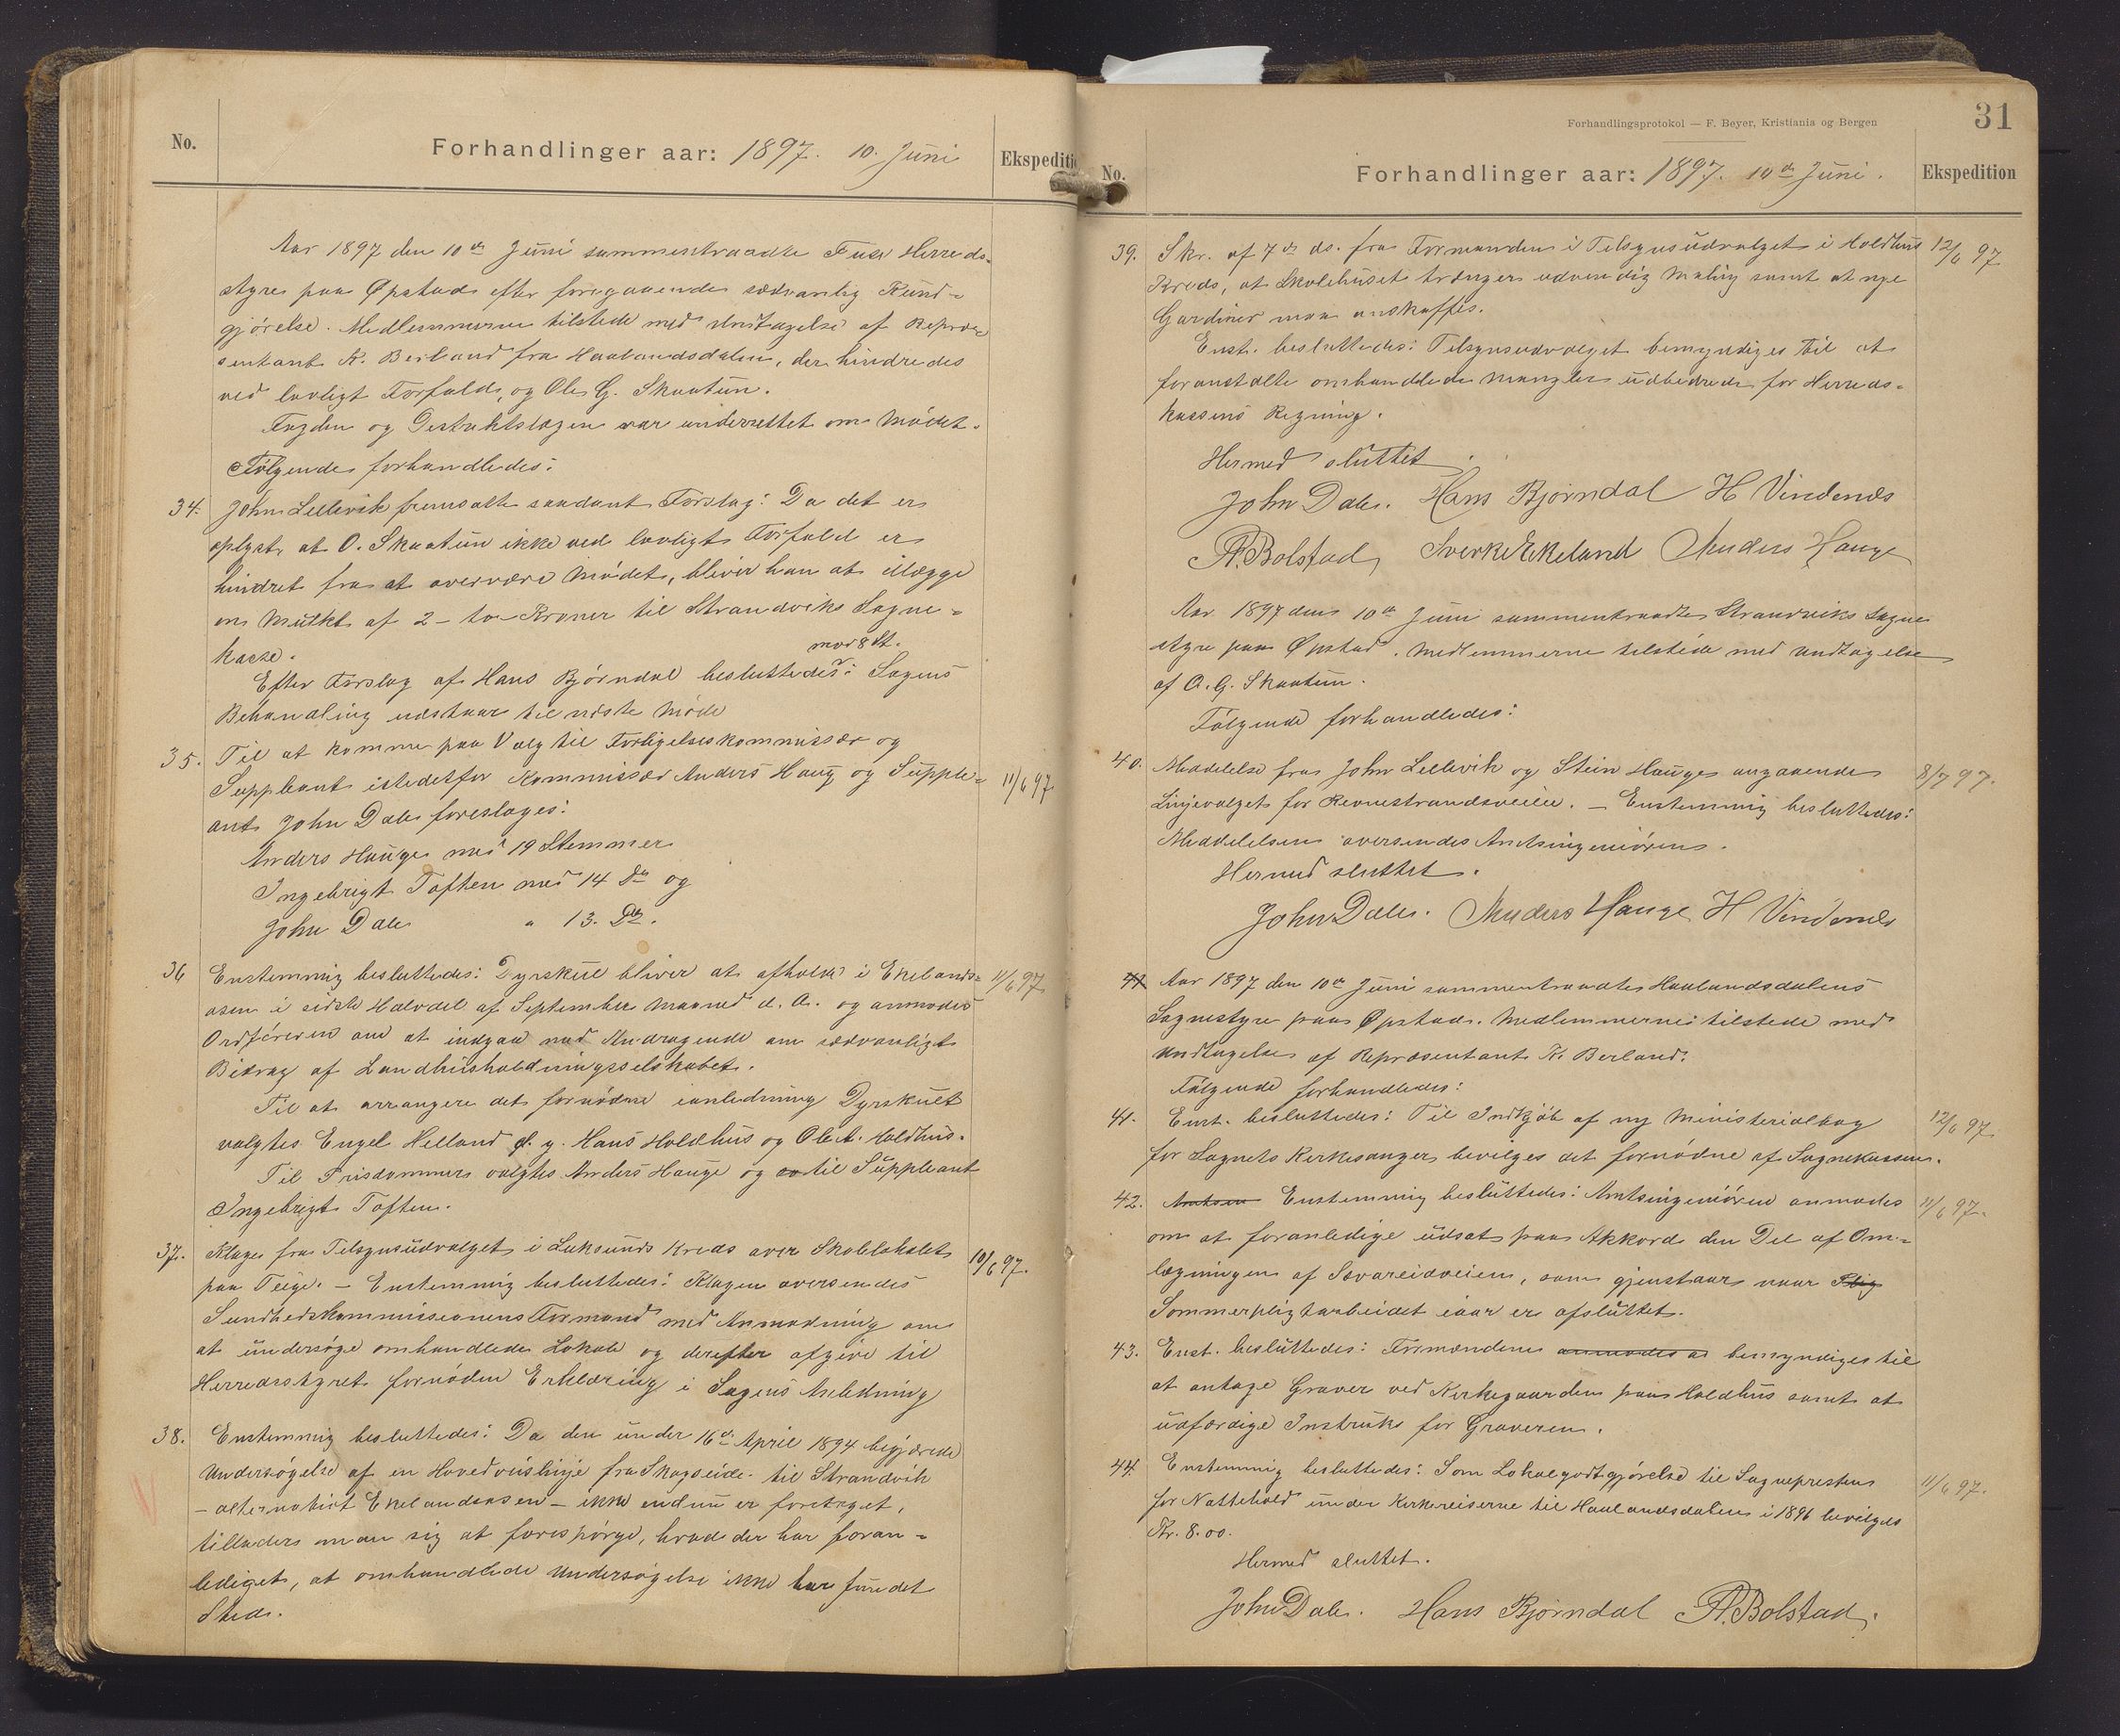 No.
Forhandlinger aar: 1897. 10. Juni
Ekspediti
Aar 1897 den 10de Juni sammentraadte Fuse Herreds-
styre paa Øpstad efter foregaaende sædvanlig Kund-
gjørelse. Medlemmerne tilstede med Undtagelse af Repræ-
sentant K. Berland fra Haalandsdalen, der hindredes
ved lovligt Forfald, og Ole G. Skaatun.
Fogden og Destriktslægen var underrettet om Mødet.
Følgende forhandledes:
34. John Lellevik fremsatte saadant Forslag: Da det er
oplyst, at O. Skaatun ikke ved lovligt Forfald er
hindret fra at overvære Mødet, bliver han at ilægge
en Mulkt af 2 - to Kroner til Strandviks Sogne-
kasse.
mod 8 St.
Efter Forslag af Hans Bjørndal besluttedes: Sagens
Behandling udstaar til næste Møde
35. Til at komme paa Valg til Forligelseskommissær og
Suppleant istedetfor Kommissær Anders Haug og Supple-
ant John Dale foreslages:
11/6 97.
Anders Hauge med 19 Stemmer
Ingebrigt Toften med 14 Do og
John Dale " 13. Do.
36 Enstemmig besluttedes: Dyrskue bliver at afholde i Ekelands-
osen i sidste Halvdel af September Maaned d. A. og anmodes
11/6 97
Ordføreren om at indgaa med Andragende om sædvanligt
Bidrag af Landhusholdningsselskabet.
Til at arrangere det fornødne ianledning Dyrskuet
valgtes Engel Helland d. y. Hans Holdhus og Ole A. Holdhus.
Til Prisdommer valgtes Anders Hauge og til Suppleant
Ingebrigt Toften.
37. Klage fra Tilsynsudvalget i Luksunds Kreds over Skolelokalet
10/6 97.
paa Teige. - Enstemmig besluttedes: Klagen oversendes
Sundhedskommissionens Formand med Anmodning om
at undersøge omhandlede Lokale og derefter afgive til
Herredsstyret fornøden Erklæring i Sagens Anledning
38. Enstemmig besluttedes: Da den under 16de April 1894 begjærede
Undersøgelse af en Hovedveislinje fra Skogseide til Strandvik
- alternativt Ekelandsosen - ikke endnu er foretaget,
tillader man sig at forespørge, hvad der har foran-
lediget, at omhandlede Undersøgelse ikke har fundet
Sted.
Forhandlingsprotokol — F. Beyer, Kristiania og Bergen
31
No.
Forhandlinger aar: 1897. 10de Juni.
Ekspedition
39. Skr. af 7de ds. fra Formanden i Tilsynsudvalget i Holdhus
12/6 97
Kreds, at Skolehuset trænger udvendig Maling samt at nye
Gardiner maa anskaffes.
Enst. besluttedes: Tilsynsudvalget bemyndiges til at
foranstalte omhandlede Mangler udbedrede for Herreds-
kassens Regning.
Hermed sluttet.
John Dale. Hans Bjørndal H Vindenes
A. Bolstad, Sverke Ekeland Anders Hauge
Aar 1897 den 10de Juni sammentraadte Strandviks Sogne
styre paa Øpstad. Medlemmerne tilstede med Undtagelse
af O. G. Skaatun.
Følgende forhandledes:
40. Meddelelse fra John Lellevik og Stein Hauge angaaende
8/7 97.
Linjevalget for Revnestrandsveien. - Enstemmig besluttedes:
Meddelelsen oversendes Amtsingeniøren.
Hermed sluttet.
John Dale. Anders Hauge H Vindenes
41 Aar 1897 den 10de Juni sammentraadte Haalandsdalens
Sognestyre paa Øpstad. Medlemmerne tilstede med
Undtagelse af Repræsentant K. Berland.
Følgende forhandledes:
41. Enst. besluttedes: Til Indkjøb af ny Ministerialbog
12/6 97.
for Sognets Kirkesanger bevilges det fornødne af Sognekassen.
42. Amtsen Enstemmig besluttedes: Amtsingeniøren anmodes
11/6 97.
om at foranledige udsat paa Akkord den Del af Om-
lægningen af Sævareidveien, som gjenstaar naar Plig
Sommerpligtarbeidet iaar er afsluttet.
43. Enst. besluttedes: Formændene anmodes at bemyndiges til
at antage Graver ved Kirkegaarden paa Holdhus samt at
udfærdige Instruks for Graveren.
44. Enstemmig besluttedes: Som Lokalgodtgjørelse til Sognepresten
11/6 97.
for Nattehold under Kirkereiserne til Haalandsdalen i 1896 bevilges
Kr. 8.00.
Hermed sluttet.
John Dale. Hans Bjørndal A. Bolstad.